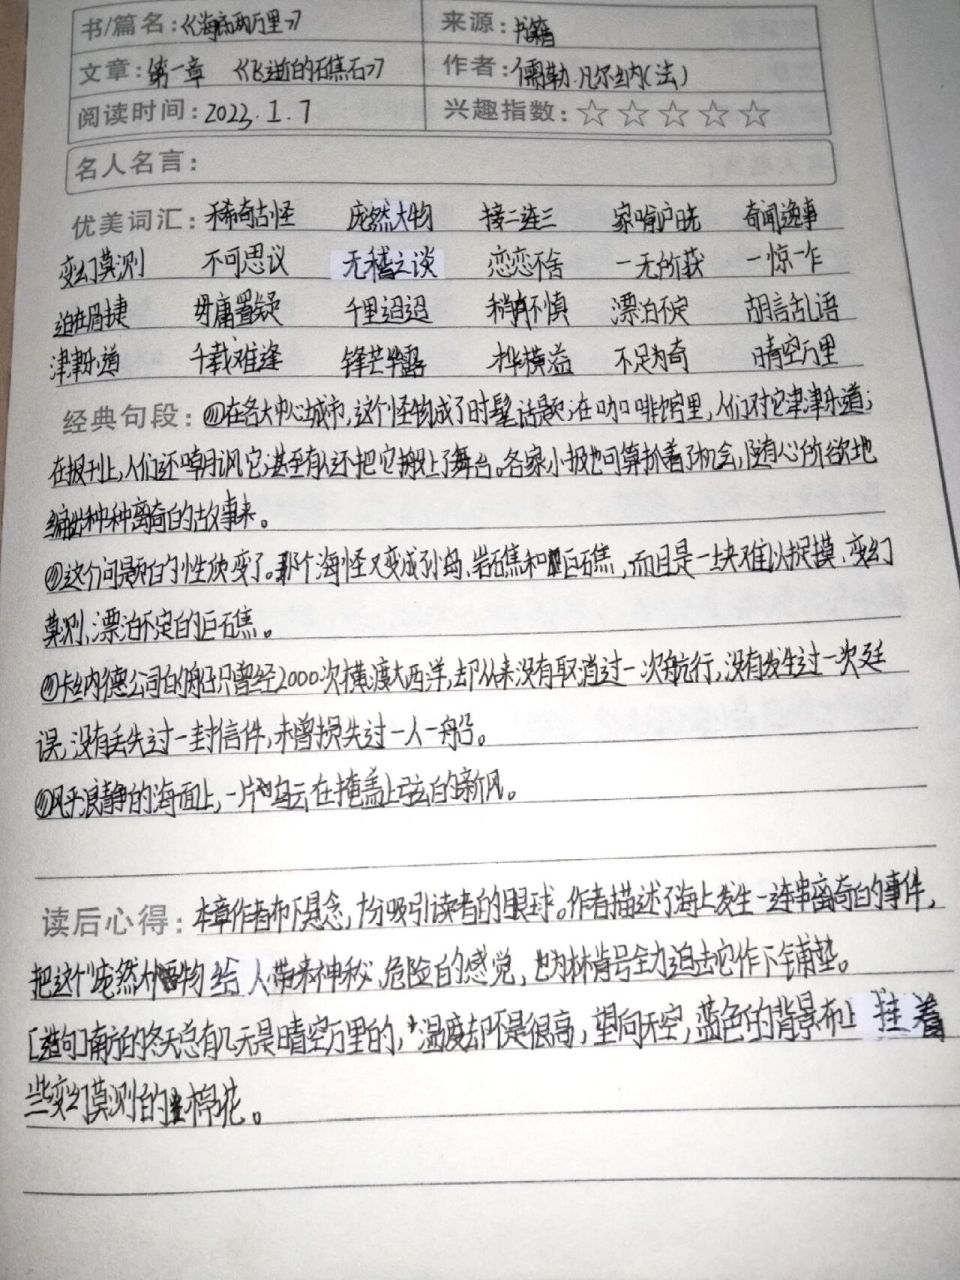 书/篇名：《海底两万里》 来源：书籍
文章：第一章 《飞逝的石焦石》 作者：儒勒·凡尔纳(法)
阅读时间：2023.1.7 兴趣指数：☆☆☆☆☆
名人名言：
优美词汇：稀奇古怪 庞然大物 接二连三 家喻户晓 奇闻逸事
变幻莫测 不可思议 无稽之谈 恋恋不舍 一无所获 一惊一乍
迫在眉捷 毋庸置疑 千里迢迢 稍有不慎 漂泊不定 胡言乱语
津津乐道 千载难逢 锋芒毕露 才华横溢 不足为奇 晴空万里
经典句段：①在各大中心城市，这个怪物成了时髦话题；在咖啡馆里，人们对它津津乐道；
在报刊上，人们还嘲讽它；甚至有人还把它搬上了舞台。各家小报也可算抓着了机会，随心所欲地
编出种种离奇的故事来。
这个问题的性质变了。那个海怪又变成孤岛、岩石焦和巨石焦，而且是一块难以捉摸、变幻
莫测、漂泊不定的巨石焦。
卡纳德公司的船只曾经2000次横渡大西洋，却从来没有取消过一次航行，没有发生过一次延
误，没有丢失过一封信件，未曾损失过一人一船。
风平浪静的海面上，一片乌云在掩盖上弦的新风。
读后心得：本章作者布下悬念，十分吸引读者的眼球。作者描述了海上发生一连串离奇的事件，
把这个"庞然 物 给人带来神秘、危险的感觉，也为林肯号全力追击它作下铺垫。
[造句]南方的冬天总有几天是晴空万里的，温度却不是很高，望向天空，蓝色的背景布上挂着
些变幻莫测的棉花。